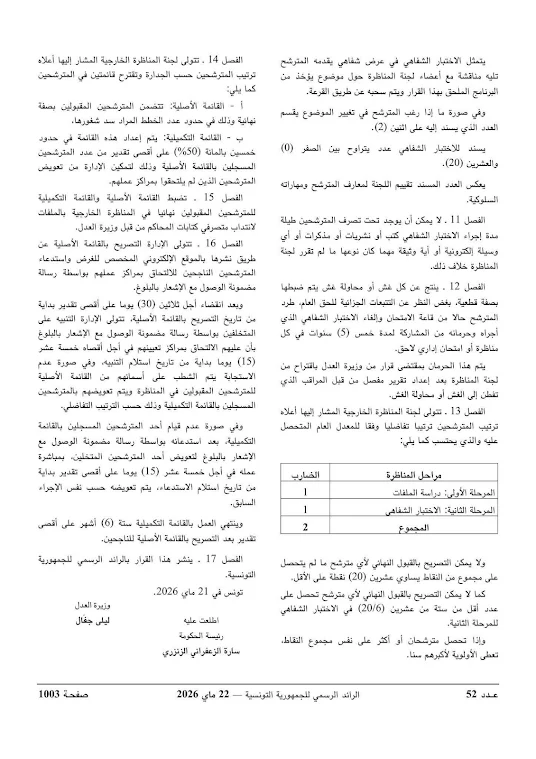 يتمثل الاختبار الشفاهي في عرض شفاهي يقدمه المترشح
تليه مناقشة مع أعضاء لجنة المناظرة حول موضوع يؤخذ من
البرنامج الملحق بهذا القرار ويتم سحبه عن طريق القرعة.
وفي صورة ما إذا رغب المترشح في تغيير الموضوع يقسم
العدد الذي يسند إليه على اثنين (2).
يسند للاختبار الشفاهي عدد يتراوح بين الصفر (0)
والعشرين (20).
يعكس العدد المسند تقييم اللجنة لمعارف المترشح ومهاراته
السلوكية.
الفصل 11 ـ لا يمكن أن يوجد تحت تصرف المترشحين طيلة
مدة إجراء الاختبار الشفاهي كتب أو نشريات أو مذكرات أو أي
وسيلة إلكترونية أو أية وثيقة مهما كان نوعها ما لم تقرر لجنة
المناظرة خلاف ذلك.
الفصل 12 ـ ينتج عن كل غش أو محاولة غش يتم ضبطها
بصفة قطعية، بغض النظر عن التتبعات الجزائية للحق العام، طرد
المترشح حالا من قاعة الامتحان وإلغاء الاختبار الشفاهي الذي
أجراه وحرمانه من المشاركة لمدة خمس (5) سنوات في كل
مناظرة أو امتحان إداري لاحق.
يتم هذا الحرمان بمقتضى قرار من وزيرة العدل باقتراح من
لجنة المناظرة بعد إعداد تقرير مفصل من قبل المراقب الذي
تفطن إلى الغش أو محاولة الغش.
الفصل 13 ـ تتولى لجنة المناظرة الخارجية المشار إليها أعلاه
ترتيب المترشحين ترتيبا تفاضليا وفقا للمعدل العام المتحصل
عليه والذي يحتسب كما يلي:
مراحل المناظرة الضارب
المرحلة الأولى: دراسة الملفات 1
المرحلة الثانية: الاختبار الشفاهي 1
المجموع 2
ولا يمكن التصريح بالقبول النهائي لأي مترشح ما لم يتحصل
على مجموع من النقاط يساوي عشرين (20) نقطة على الأقل.
كما لا يمكن التصريح بالقبول النهائي لأي مترشح تحصل على
عدد أقل من ستة من عشرين (20/6) في الاختبار الشفاهي
للمرحلة الثانية.
وإذا تحصل مترشحان أو أكثر على نفس مجموع النقاط،
تعطى الأولوية لأكبرهم سنا.
الفصل 14 ـ تتولى لجنة المناظرة الخارجية المشار إليها أعلاه
ترتيب المترشحين حسب الجدارة وتقترح قائمتين في المترشحين
كما يلي:
أ - القائمة الأصلية: تتضمن المترشحين المقبولين بصفة
نهائية وذلك في حدود عدد الخطط المراد سد شغورها،
ب - القائمة التكميلية: يتم إعداد هذه القائمة في حدود
خمسين بالمائة (50%) على أقصى تقدير من عدد المترشحين
المسجلين بالقائمة الأصلية وذلك لتمكين الإدارة من تعويض
المترشحين الذين لم يلتحقوا بمراكز عملهم.
الفصل 15 ـ تضبط القائمة الأصلية والقائمة التكميلية
للمترشحين المقبولين نهائيا في المناظرة الخارجية بالملفات
لانتداب متصرفي كتابات المحاكم من قبل وزيرة العدل.
الفصل 16 ـ تتولى الإدارة التصريح بالقائمة الأصلية عن
طريق نشرها بالموقع الإلكتروني المخصص للغرض واستدعاء
المترشحين الناجحين للالتحاق بمراكز عملهم بواسطة رسالة
مضمونة الوصول مع الإشعار بالبلوغ.
وبعد انقضاء أجل ثلاثين (30) يوما على أقصى تقدير بداية
من تاريخ التصريح بالقائمة الأصلية، تتولى الإدارة التنبيه على
المتخلفين بواسطة رسالة مضمونة الوصول مع الإشعار بالبلوغ
بأن عليهم الالتحاق بمراكز تعيينهم في أجل أقصاه خمسة عشر
(15) يوما بداية من تاريخ استلام التنبيه، وفي صورة عدم
الاستجابة يتم الشطب على أسمائهم من القائمة الأصلية
للمترشحين المقبولين في المناظرة ويتم تعويضهم بالمترشحين
المسجلين بالقائمة التكميلية وذلك حسب الترتيب التفاضلي.
وفي صورة عدم قيام أحد المترشحين المسجلين بالقائمة
التكميلية، بعد استدعائه بواسطة رسالة مضمونة الوصول مع
الإشعار بالبلوغ لتعويض أحد المترشحين المتخلين، بمباشرة
عمله في أجل خمسة عشر (15) يوما على أقصى تقدير بداية
من تاريخ استلام الاستدعاء، يتم تعويضه حسب نفس الإجراء
السابق.
وينتهي العمل بالقائمة التكميلية ستة (6) أشهر على أقصى
تقدير بعد التصريح بالقائمة الأصلية للناجحين.
الفصل 17 ـ ينشر هذا القرار بالرائد الرسمي للجمهورية
التونسية.
تونس في 21 ماي 2026.
وزيرة العدل
ليلى جفال
اطلعت عليه
رئيسة الحكومة
سارة الزعفراني الزنزري
عـدد 52 الرائد الرسمي للجمهورية التونسية — 22 ماي 2026 صفحـة 1003